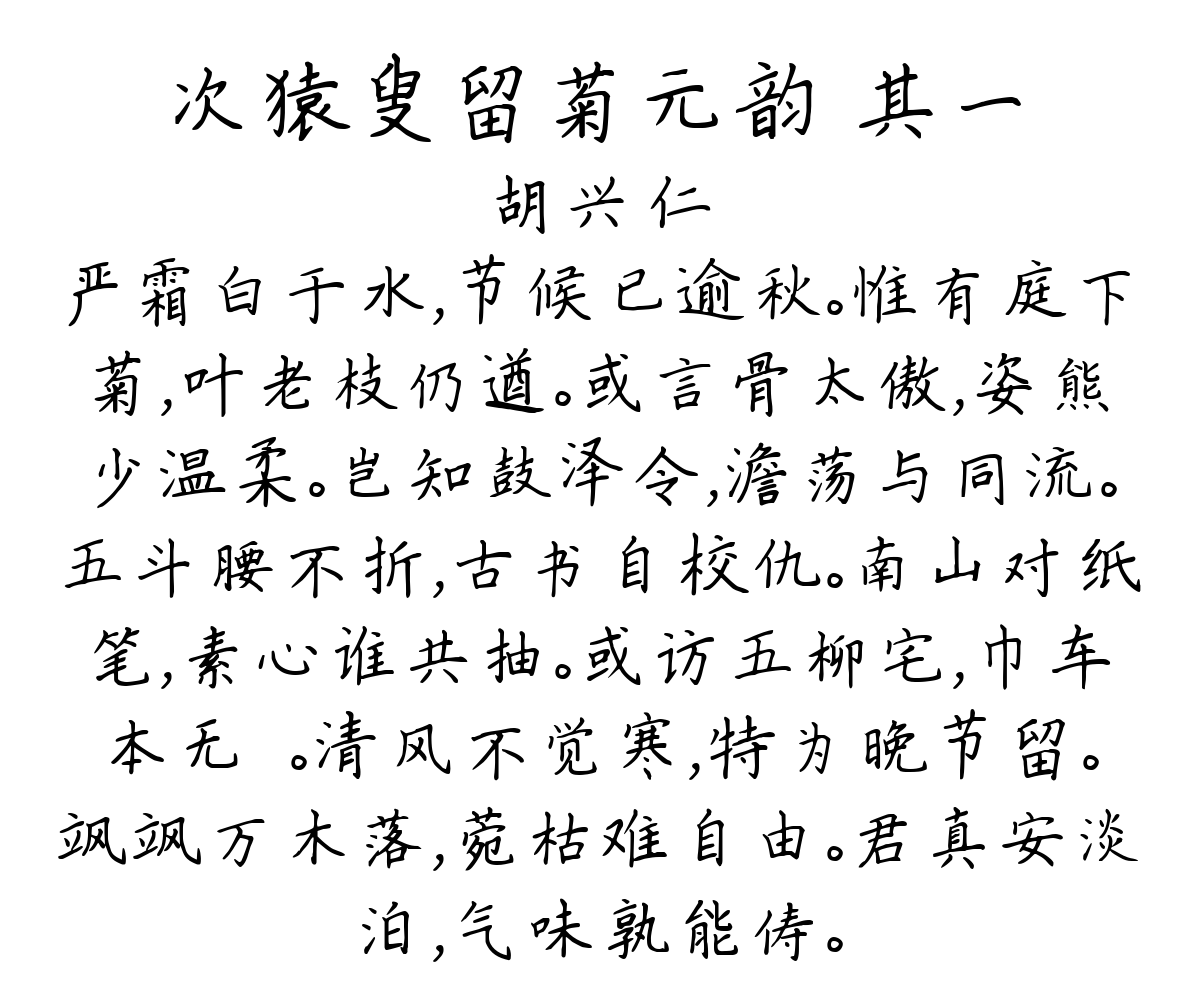 次猿叟留菊元韵 其一
胡兴仁
严霜白于水,节候已逾秋。惟有庭下
菊,叶老枝仍遒。或言骨太傲,姿熊
少温柔。岂知鼓泽令,澹荡与同流。
五斗腰不折,古书自校仇。南山对纸
笔,素心谁共抽。或访五柳宅,巾车
本无 。清风不觉寒,特为晚节留。
飒飒万木落,菀枯难自由。君真安淡
泊,气味孰能俦。